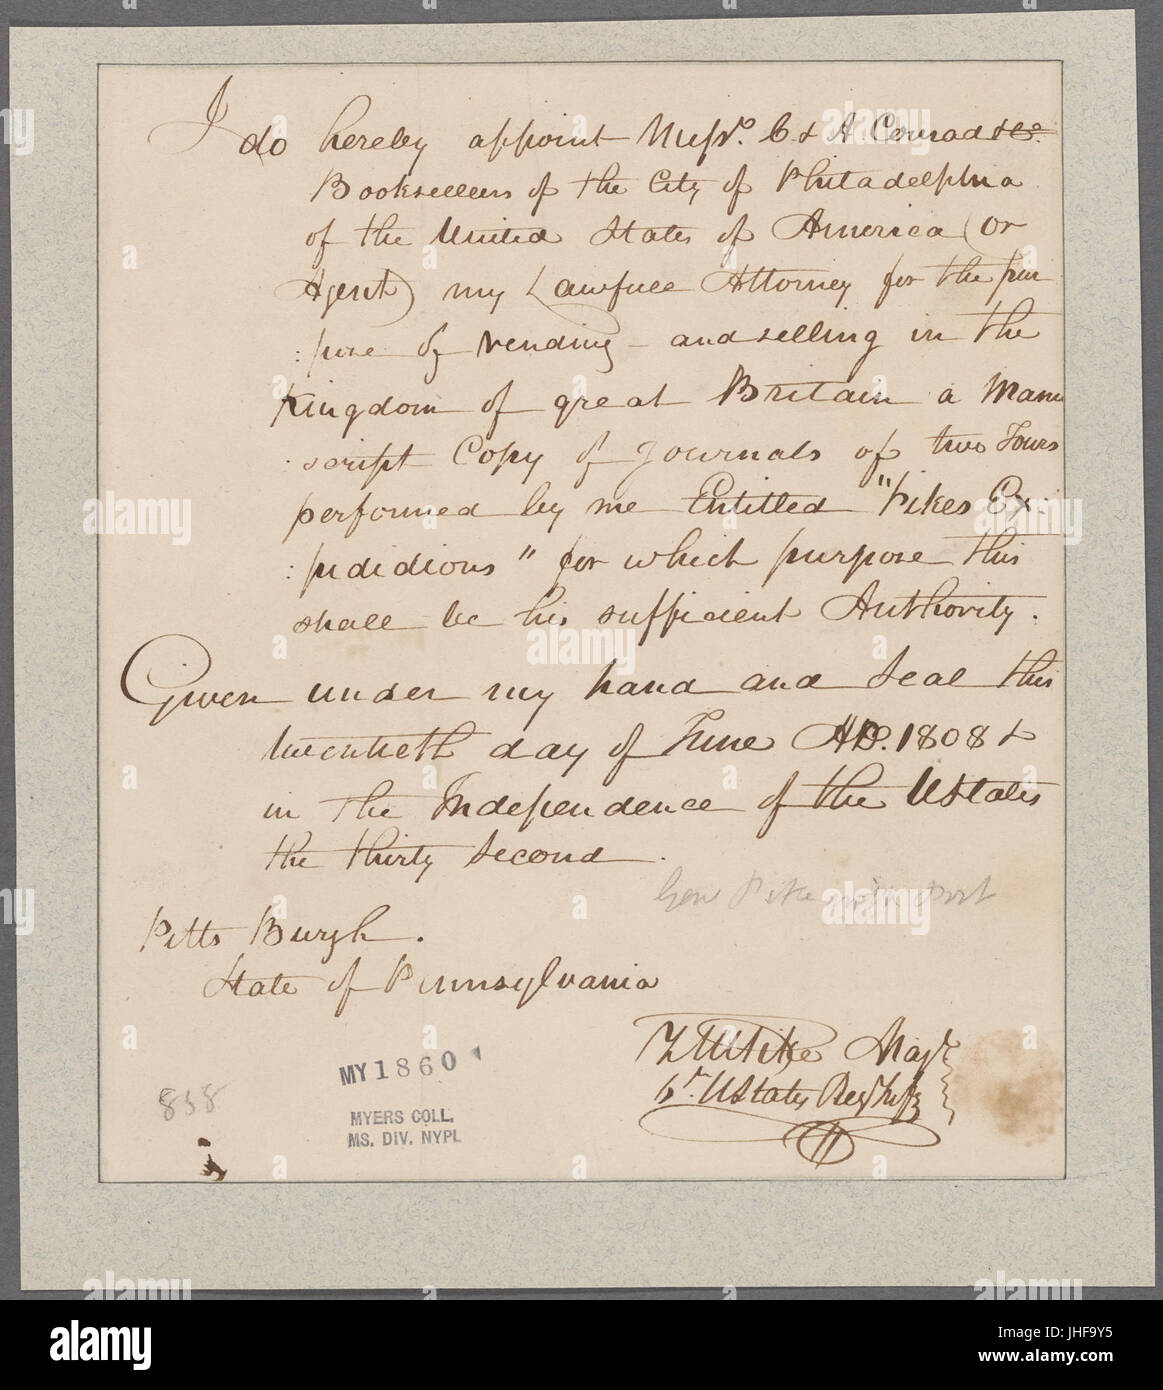 I do hereby appoint Messrs. C & A Conrad & Co.
Booksellers of the City of Philadelphia
of the United States of America (or
Agent) my Lawfull Attorney for the pur
:pose of vending and selling in the
Kingdom of great Britain a Manu
:script Copy of Journals of two Tours
performed by me Entitled "Pikes Ex:
:pididious" for which purpose this
shall be his sufficient Authority.
Given under my hand and Seal this
twentieth day of June AD. 1808 &
in the Independence of the UStates
the thirty Second.
Genl Pike
Pitts Burgh.
State of Pennsylvania
Z M Pike Majr
6th UStates Regt Infy
MY 1860
838
MYERS COLL.
MS. DIV. NYPL
alamy
Image ID: JHF9Y5
www.alamy.com